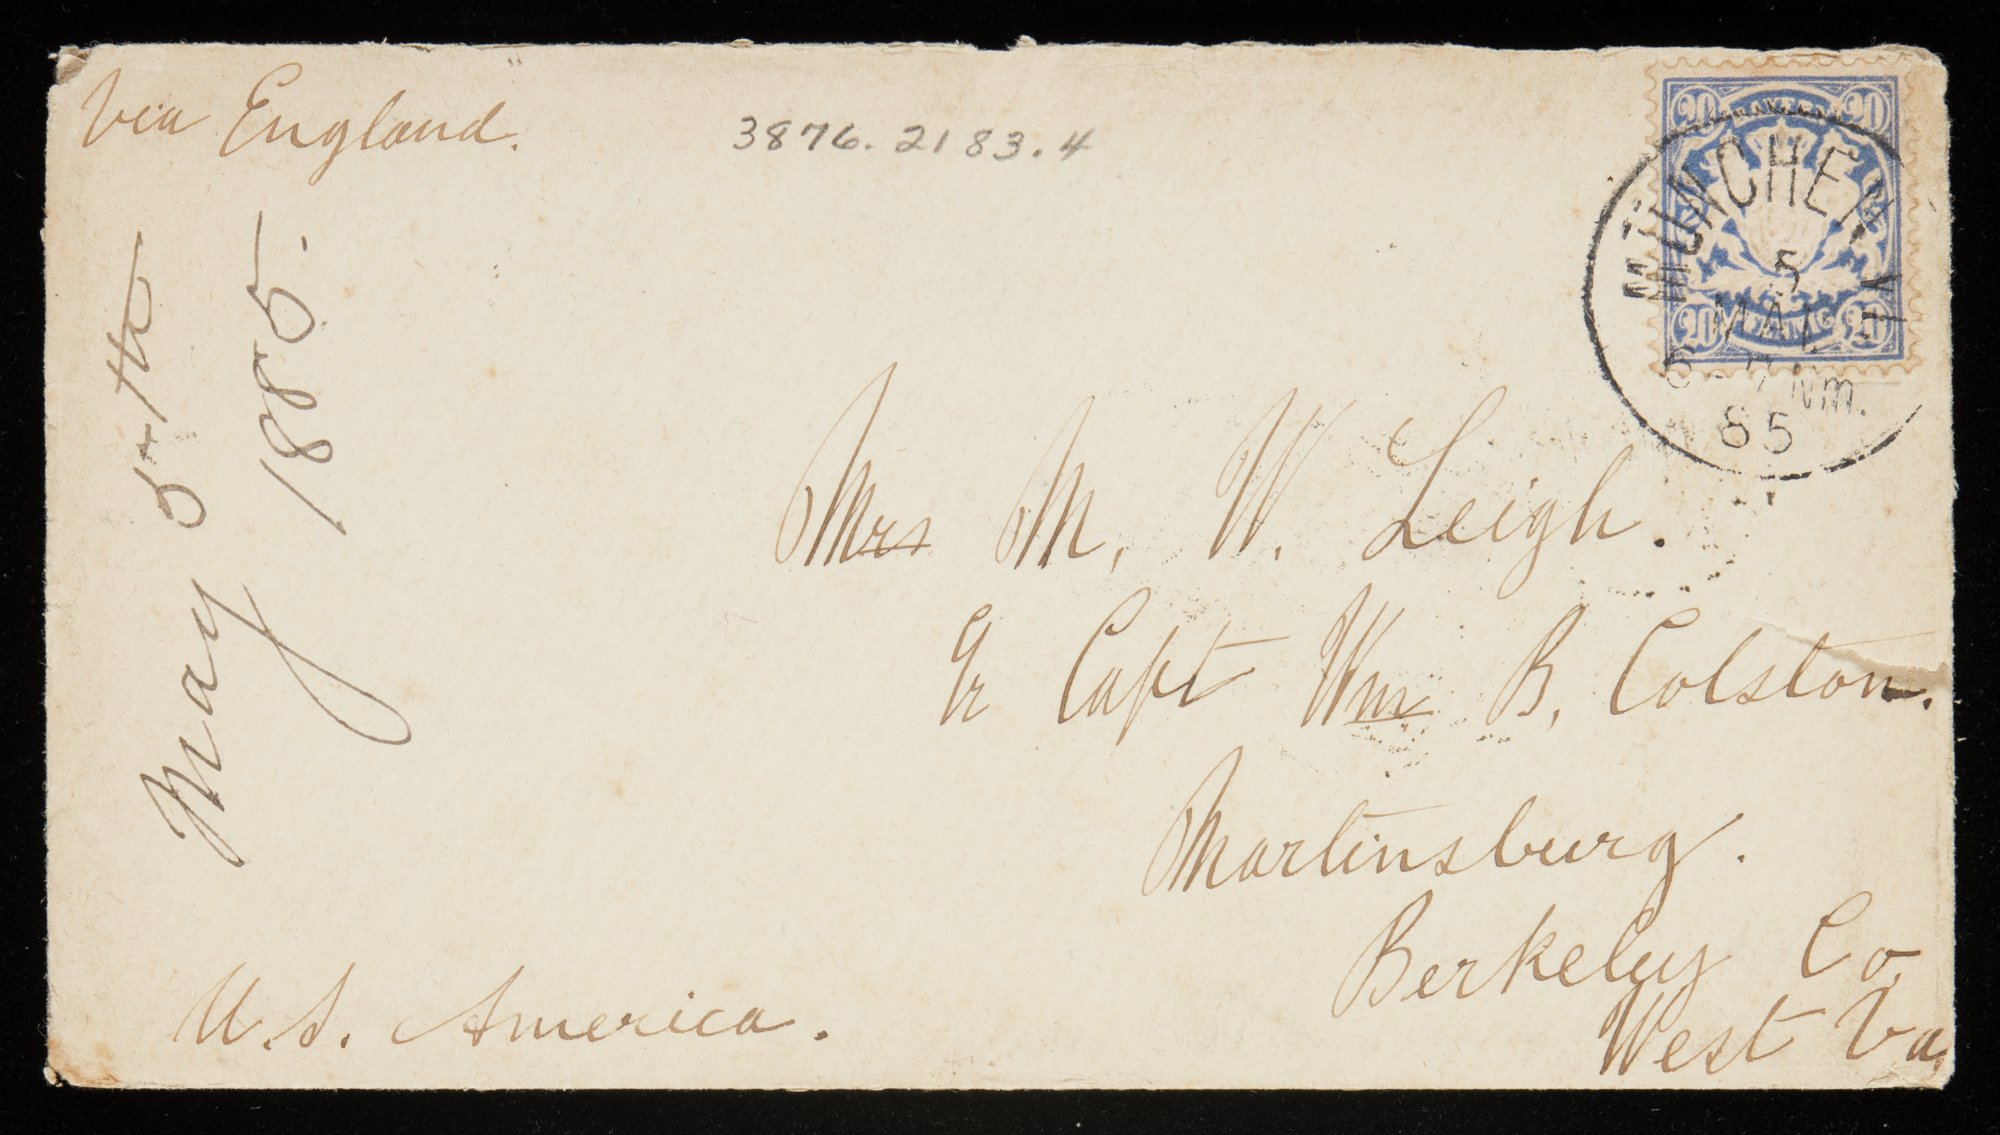 Via England.
3876.2183.4
20 BAYERN 20
20 PFENNIG 20
MÜNCHEN
5
MAI
6-7 Nm.
85
May 5th
1885.
Mrs M. W. Leigh.
Capt Wm B. Colston.
Martinsburg.
Berkeley Co
West Va.
U.S. America.